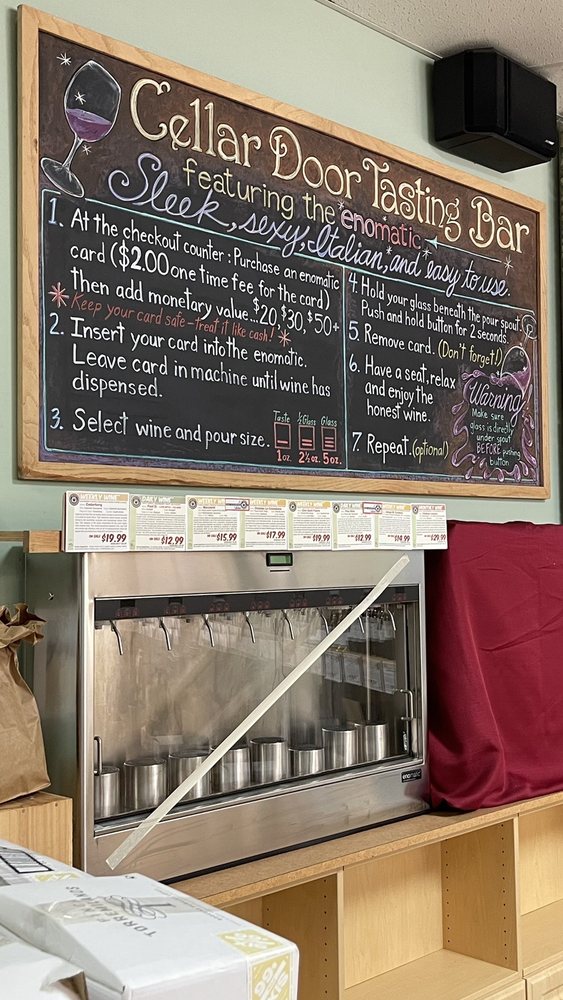 Cellar Door Tasting Bar
featuring the enomatic
Sleek, sexy, Italian, and easy to use.
1. At the checkout counter: Purchase an enomatic
card ($2.00 one time fee for the card)
then add monetary value...$20, $30, $50+
Keep your card safe-treat it like cash!
2. Insert your card into the enomatic.
Leave card in machine until wine has
dispensed.
3. Select wine and pour size.
Taste ½ Glass Glass
1oz. 2½ oz. 5oz.
4. Hold your glass beneath the pour spout.
Push and hold button for 2 seconds.
5. Remove card. (Don't forget!)
6. Have a seat, relax
and enjoy the
honest wine.
7. Repeat. (optional)
Warning
Make sure
glass is directly
under spout
BEFORE pushing
button
WEEKLY WINE
DAILY WINE
WEEKLY WINE
$19.99
$12.99
$15.99
$17.99
$19.99
$12.99
$14.99
$29.99
enomatic
TORRE